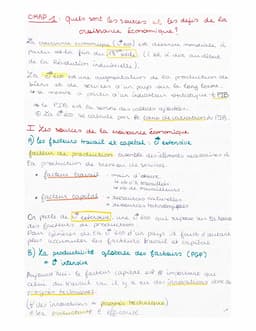 CHAP 1 : Quels sont les sources et les défis de la
croissance économique ?
La croissance économique (↑ éco) est devenue mondiale à
partir de la fin du 18e siècle (
de la Révolution industrielle).
La ↑ éco est une augmentation de la production de
biens et de services d'un pays sur le long terme.
se mesure à partir d'un indicateur statistique : PIB
Le PIB est la somme des valeurs ajoutées.
La ↑ éco se calcule par le taux de variation du PIB.
I Les sources de la croissance économique
A) les facteurs travail et capital : ↑ extensive
facteur de production : ensemble des éléments nécessaires à
la production de biens ou de services.
• facteur travail - main d'œuvre
→ nb d'h travaillées
→ nb de travailleurs
• facteur capital = ressources naturelles
= ressources technologiques
On parle de ↑ extensive : une ↑ éco qui repose sur la hausse
des facteurs de production
Pour générer de la ↑ éco d'un pays il faut d'autant
plus accumuler les facteurs travail et capital.
B) La productivité globale des facteurs (PGF)
= ↑ intensive
Aujourd'hui le facteur capital est + important que
celui du travail car il y a eu des innovations dans le
progrès technique
(↑ des innovations = progrès technique)
efficacité